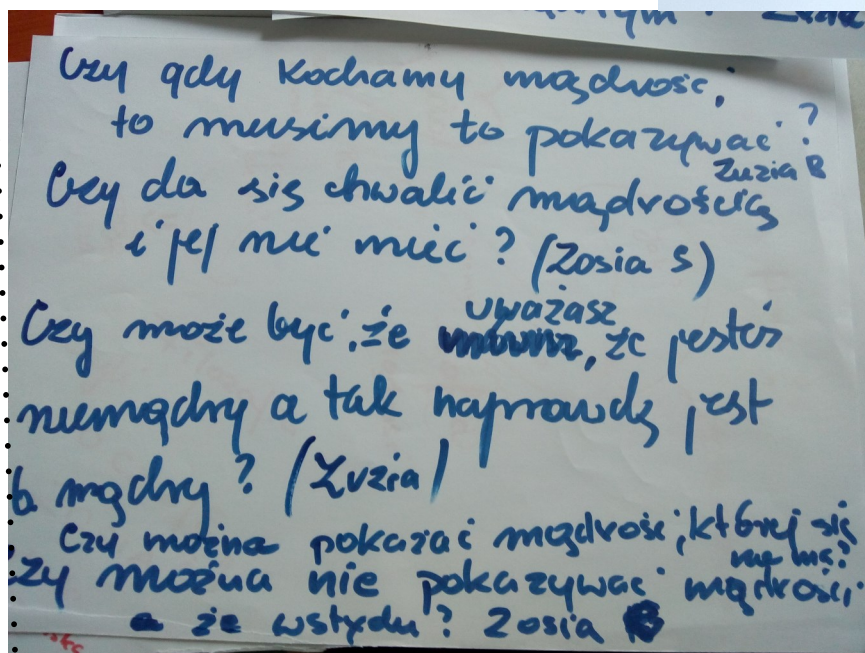 Czy gdy kochamy mądrość,
to musimy to pokazywać?
Zuzia B
Czy da się chwalić mądrością
i jej nie mieć? (Zosia S)
uważasz
Czy może być, że, że jesteś
niemądry a tak naprawdę jest
b mądry? (Zuzia)
Czy można pokazać mądrość, której się
nie ma?
Czy można nie pokazywać mądrości
a ze wstydu? Zosia